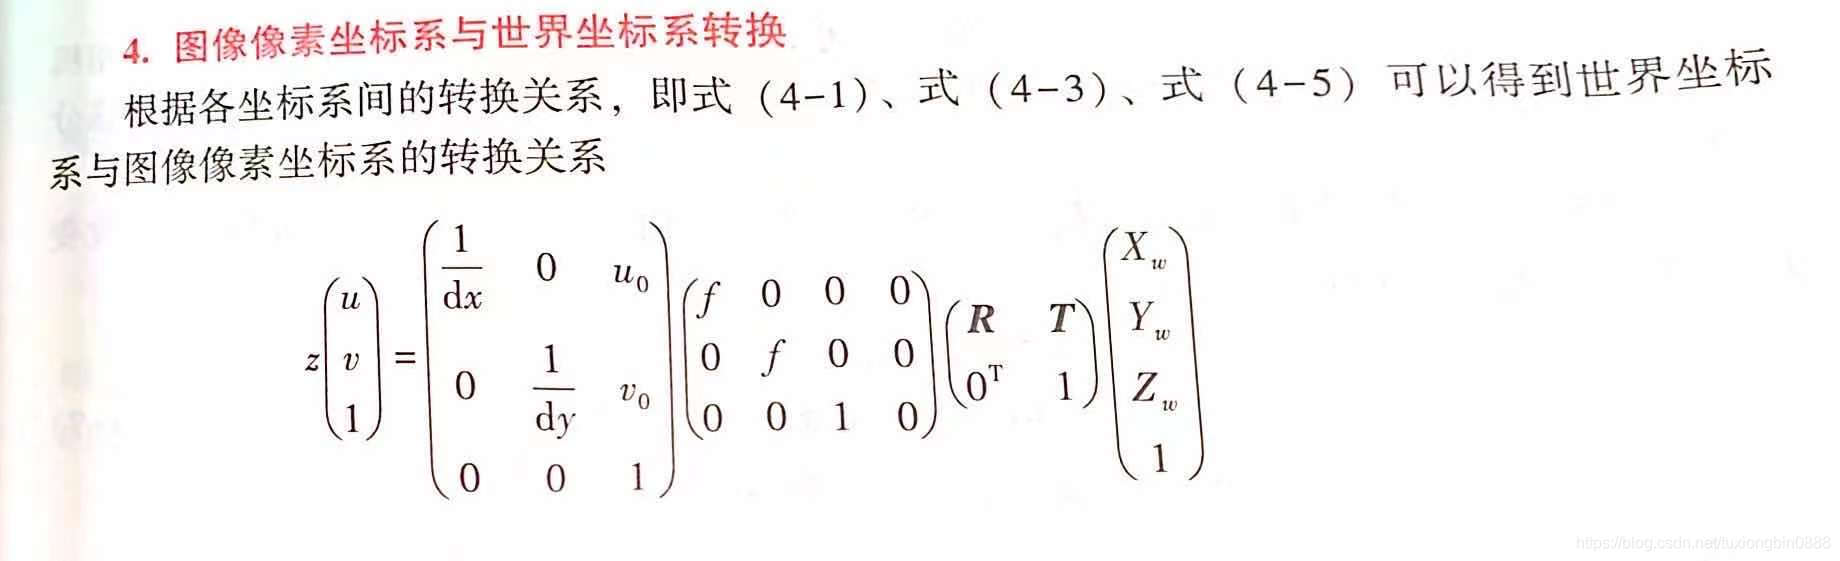 4. 图像像素坐标系与世界坐标系转换
根据各坐标系间的转换关系，即式（4-1）、式（4-3）、式（4-5）可以得到世界坐标
系与图像像素坐标系的转换关系
z(u v 1) = (1/dx 0 u₀ 0 1/dy v₀ 0 0 1)(f 0 0 0 0 f 0 0 0 0 1 0)(R T 0ᵀ 1)(X_w Y_w Z_w 1)
https://blog.csdn.net/luxiongbin0888